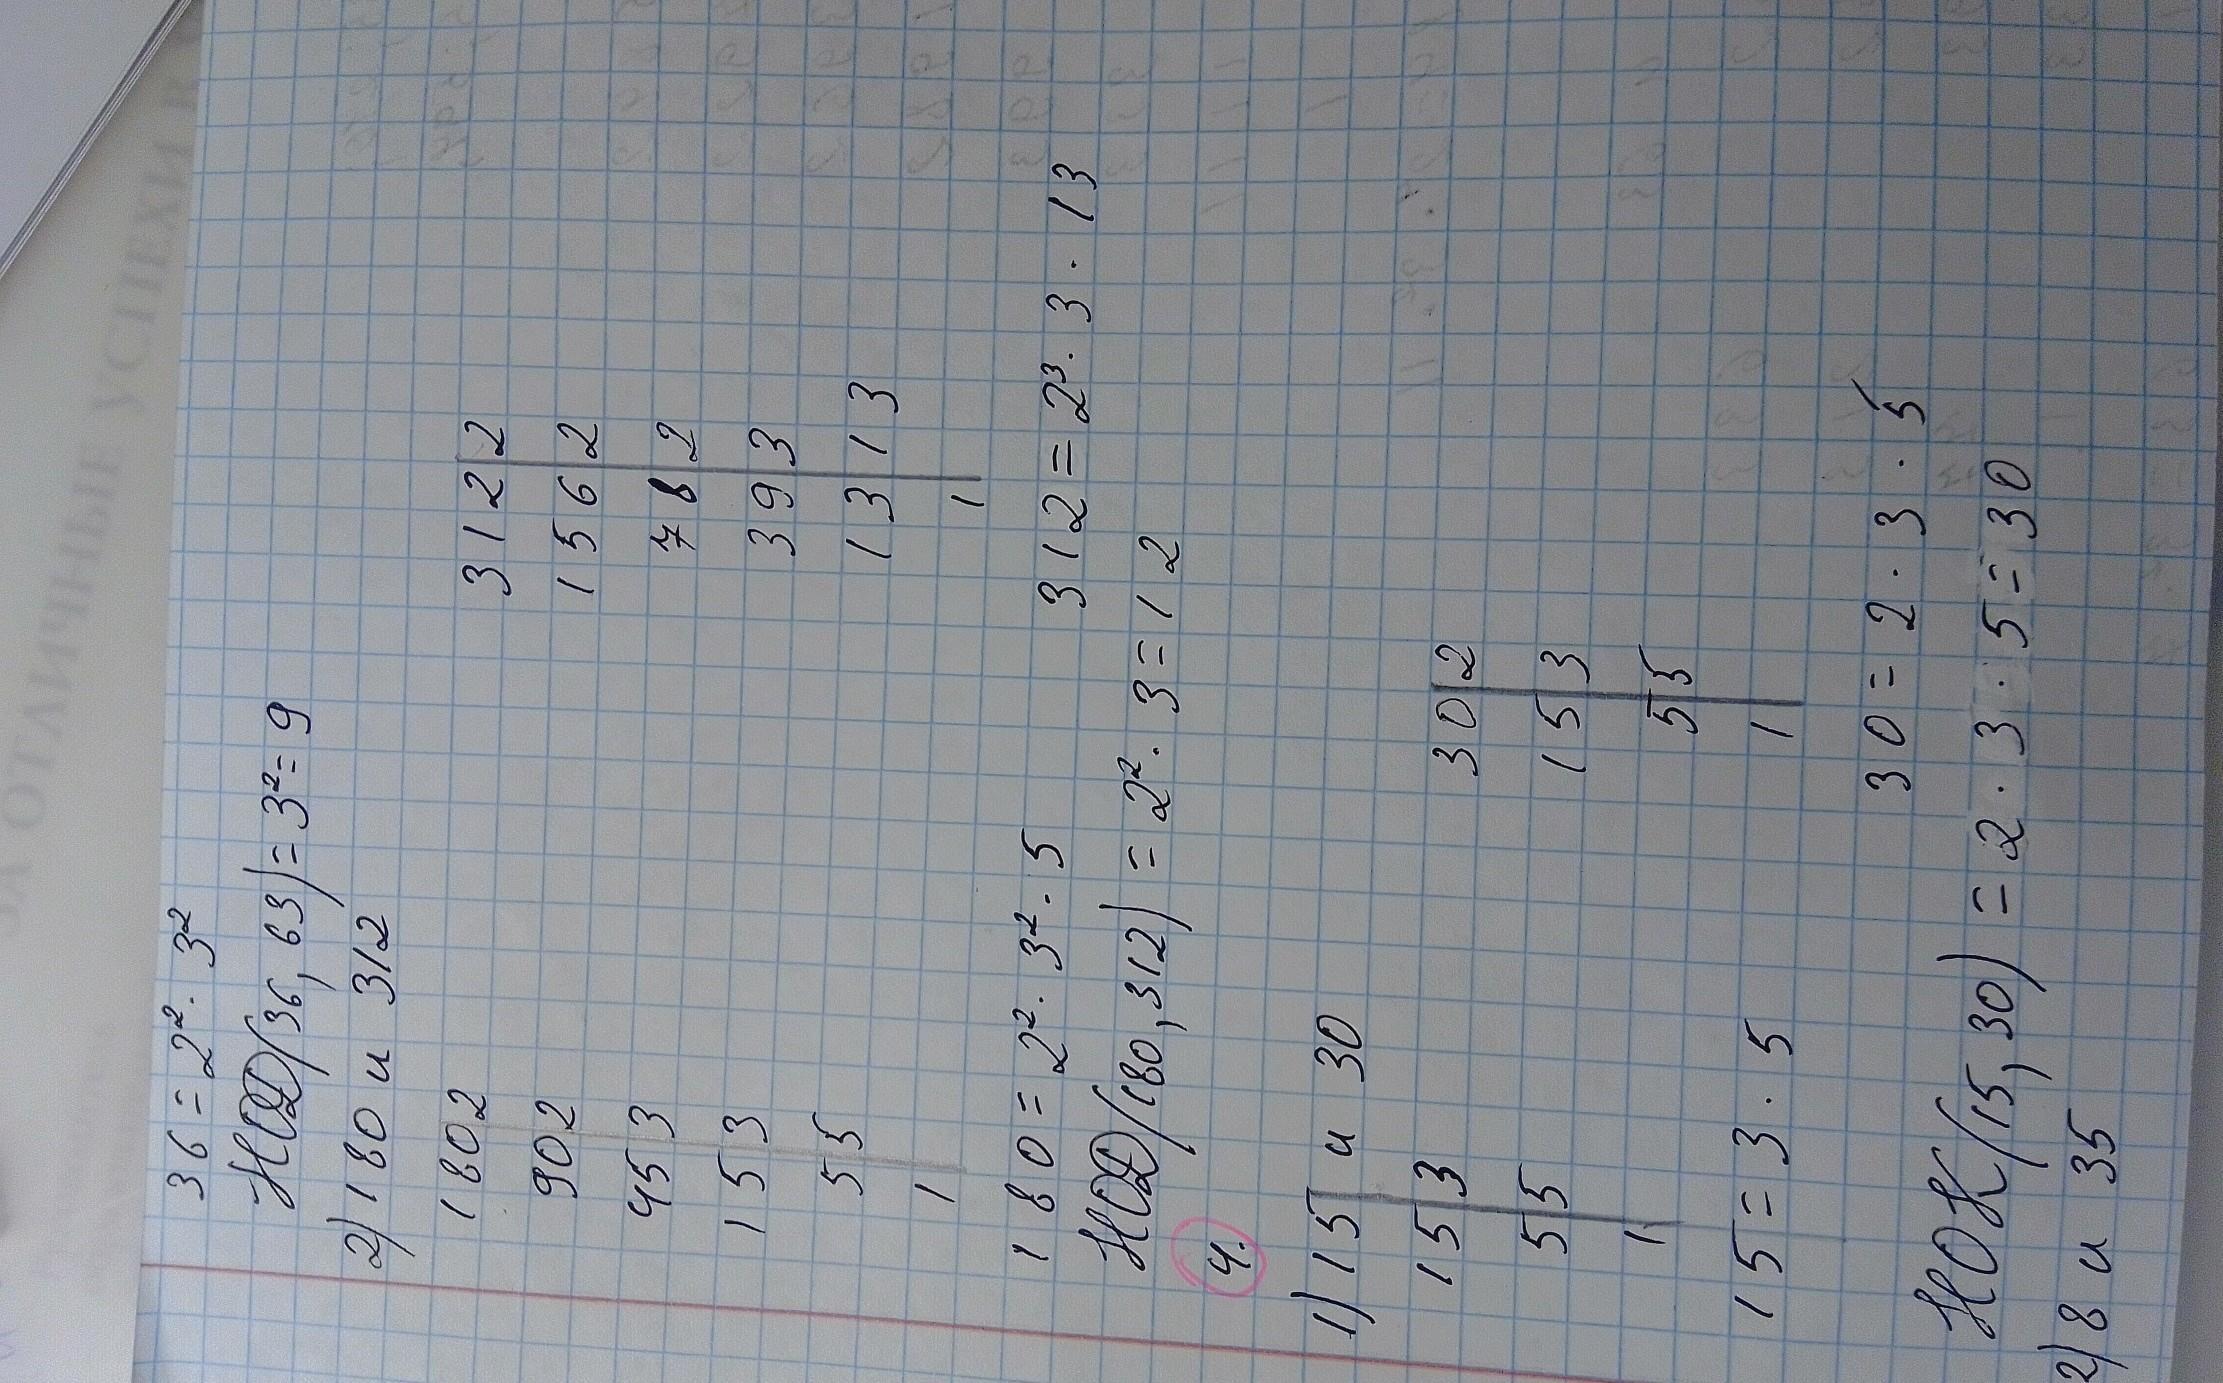 36 = 2². 3²
НОД(36, 63) = 3² = 9
2) 180 и 312
180 2 312 2
90 2 156 2
45 3 78 2
15 3 39 3
5 5 13 13
1 1
180 = 2². 3². 5 312 = 2³. 3. 13
НОД(180, 312) = 2². 3 = 12
4.
1) 15 и 30
15 3 30 2
5 5 15 3
1 5 5
1
15 = 3. 5 30 = 2. 3. 5
НОК(15, 30) = 2. 3. 5 = 30
2) 8 и 35
ЗА ОТЛИЧНЫЕ УСПЕХИ В